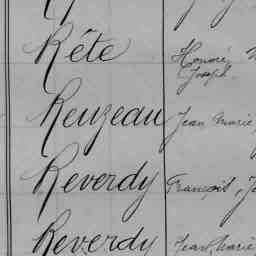 Rête Honoré
Joseph
Reuzeau Jean Marie
Reverdy François, J
Reverdy Jean Marie